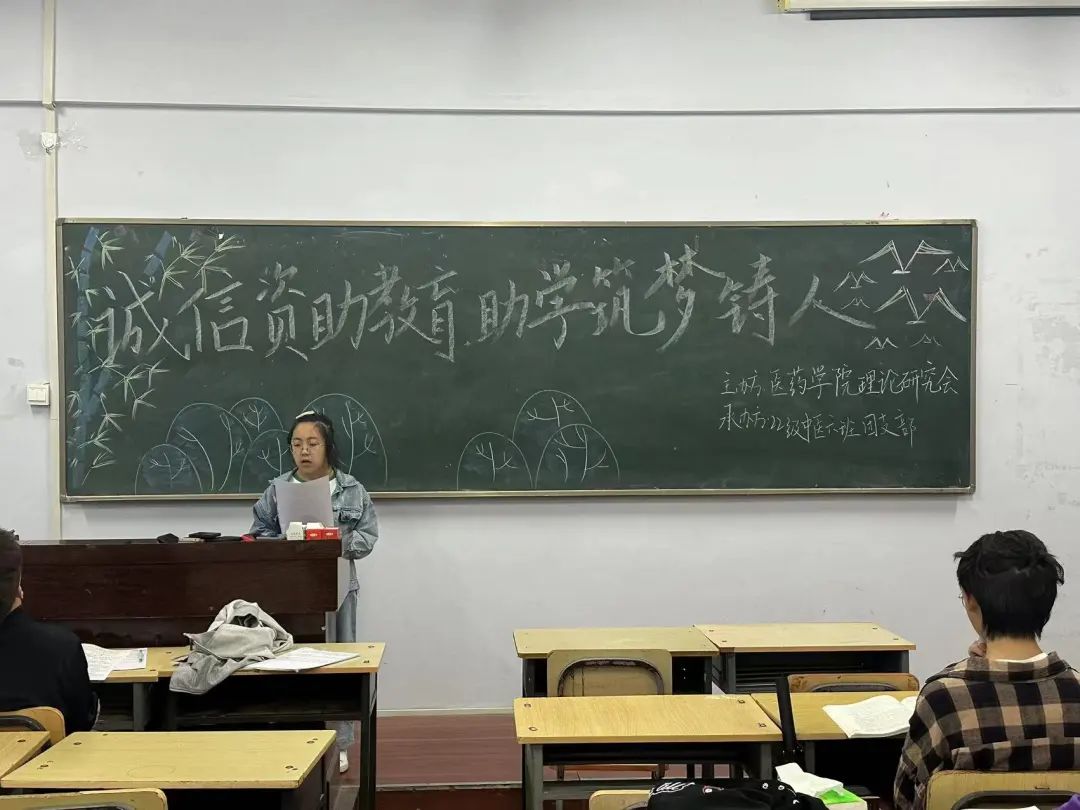 诚信资助教育 助学筑梦铸人
主办方:医药学院理论研究会
承办方:22级中医六班团支部